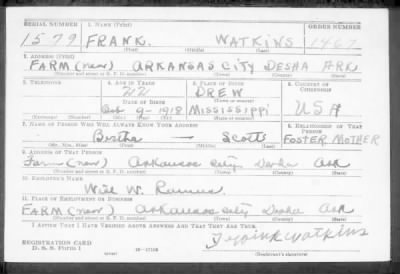 SERIAL NUMBER 1. NAME (Print) ORDER NUMBER
1579 FRANK. WATKINS 1467
(First) (Middle) (Last)
2. ADDRESS (Print)
FARM (near) ARKANSAS CITY DESHA ARK
(Number and street or R. F. D. number) (Town) (County) (State)
3. TELEPHONE 4. AGE IN YEARS 5. PLACE OF BIRTH 6. COUNTRY OF CITIZENSHIP
22 DREW
DATE OF BIRTH (Town or county)
9-1918 MISSISSIPPI USA
(Exchange) (No.) (Mo.) (Day) (Yr.) (State or country)
7. NAME OF PERSON WHO WILL ALWAYS KNOW YOUR ADDRESS 8. RELATIONSHIP OF THAT PERSON
Bertha — Scott FOSTER MOTHER
(Mr., Mrs., Miss) (First) (Middle) (Last)
9. ADDRESS OF THAT PERSON
Farm (near) Arkansas City Desha Ark
(Number and street or R. F. D. number) (Town) (County) (State)
10. EMPLOYER'S NAME
Will W.
11. PLACE OF EMPLOYMENT OR BUSINESS
FARM (near) Arkansas City Desha Ark
(Number and street or R. F. D. number) (Town) (County) (State)
I AFFIRM THAT I HAVE VERIFIED ABOVE ANSWERS AND THAT THEY ARE TRUE.
REGISTRATION CARD
D. S. S. Form 1
Frank Watkins